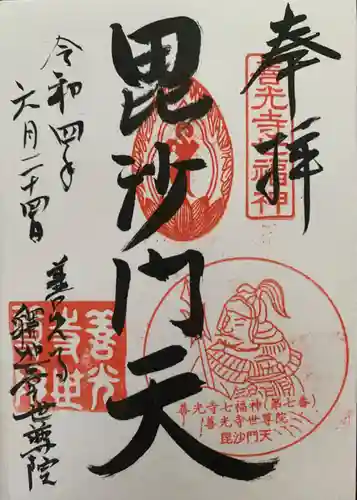 奉拝
善光寺七福神
毘沙門天
令和四年
六月二十四日
善光寺
釈迦堂世尊院
善光寺世
善光寺七福神(第七番)
善光寺世尊院
毘沙門天